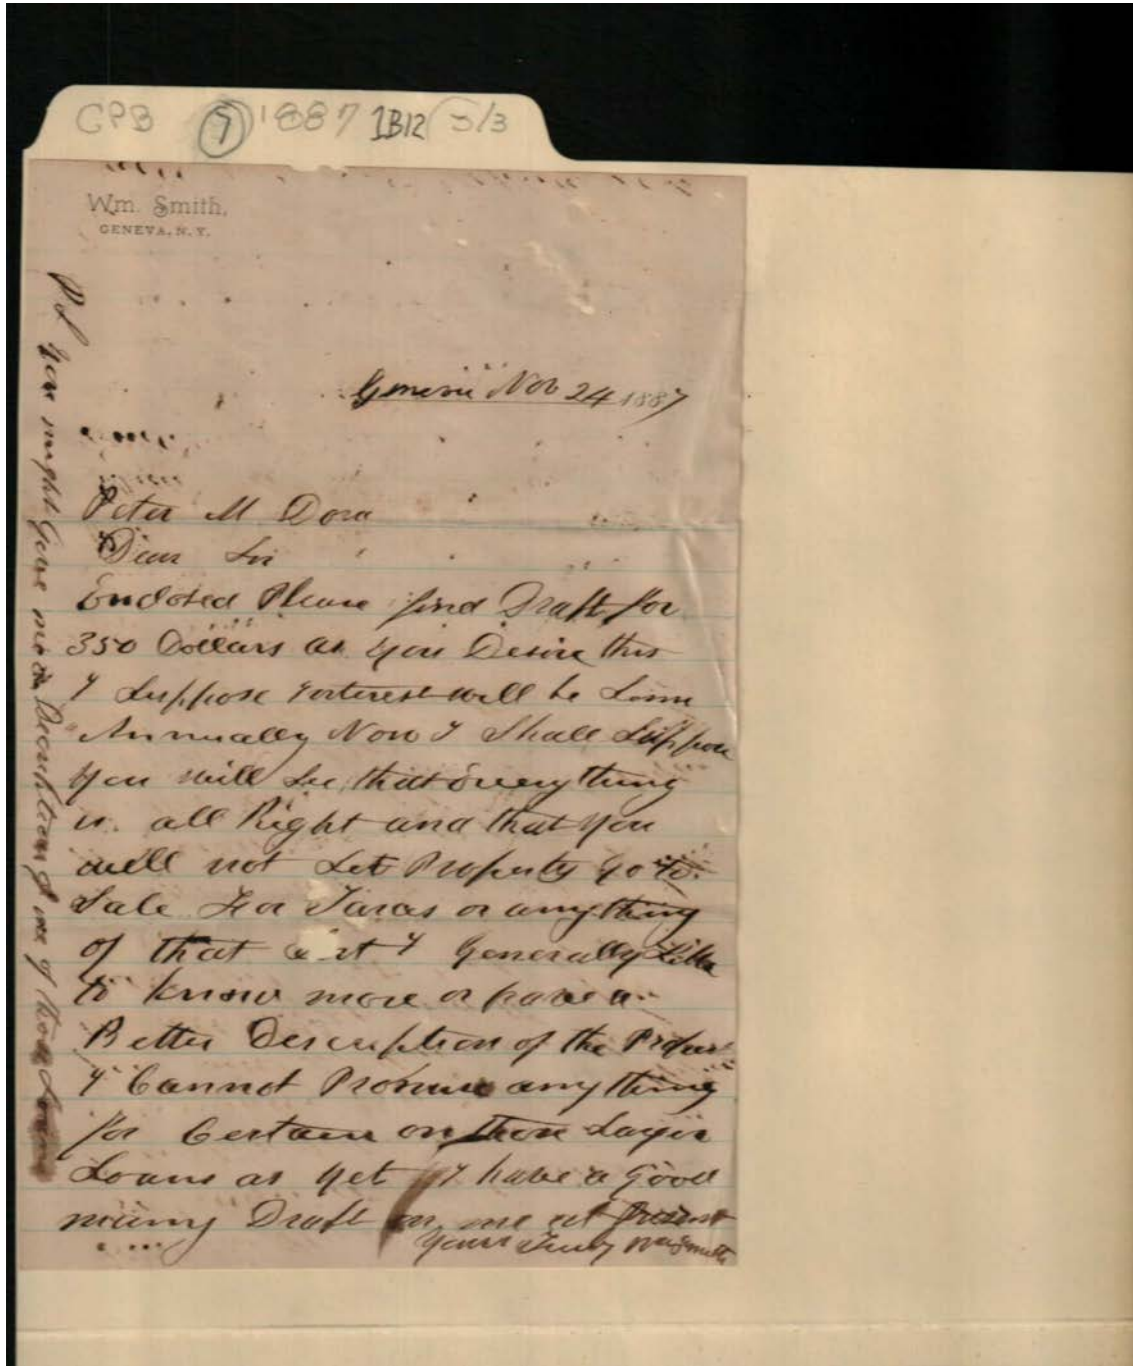 CPB 9 1887 1B12 5/3
Wm. Smith,
GENEVA, N.Y.
Geneva Nov 24 1887
Peter M Dora
Dear Sir
Enclosed Please find Draft for
350 Dollars as you Desire this
I Suppose Interest will be Semi
Annually Now I Shall Suppose
you will See that every thing
is all Right and that you
will not Let Property go to
Sale For Taxes or anything
of that sort I Generally Like
to know more or have a
Better Description of the Proper
I Cannot Promise any thing
for Certain on those Larger
Loans as yet I have a Good
many Draft on me at Present
Yours Truly Wm Smith
PS you might give me a Description of one of those Loans